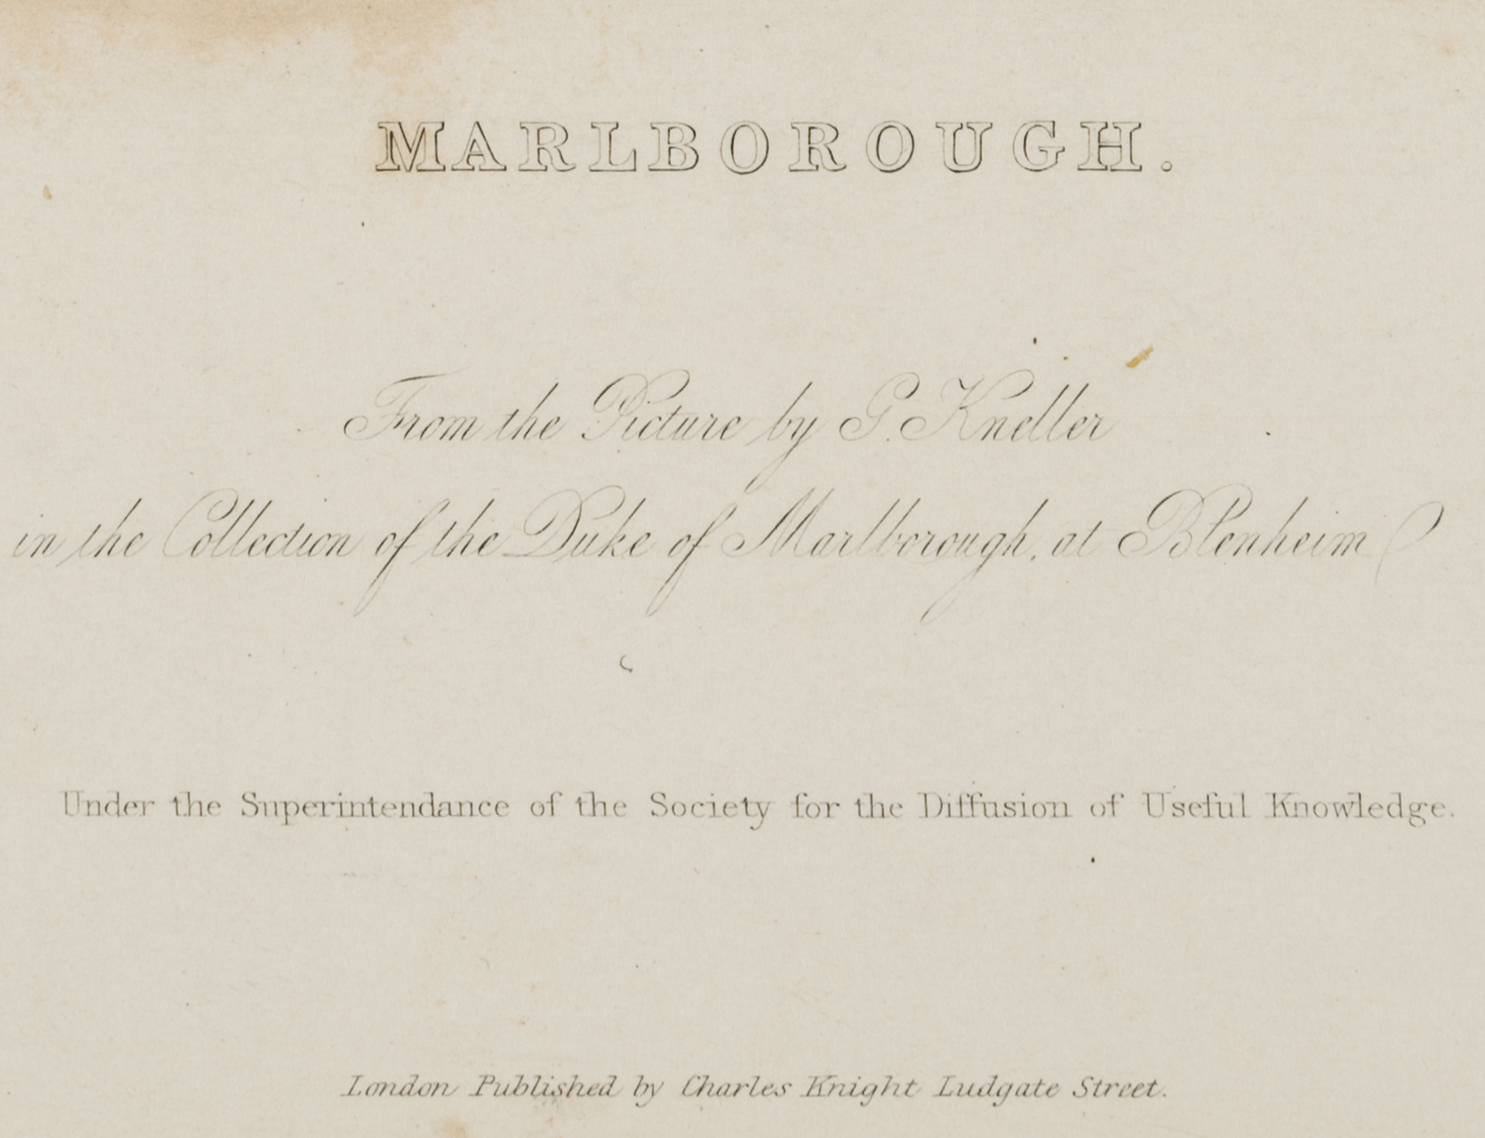 MARLBOROUGH.
From the Picture by G. Kneller
in the Collection of the Duke of Marlborough, at Blenheim
Under the Superintendance of the Society for the Diffusion of Useful Knowledge.
London Published by Charles Knight Ludgate Street.